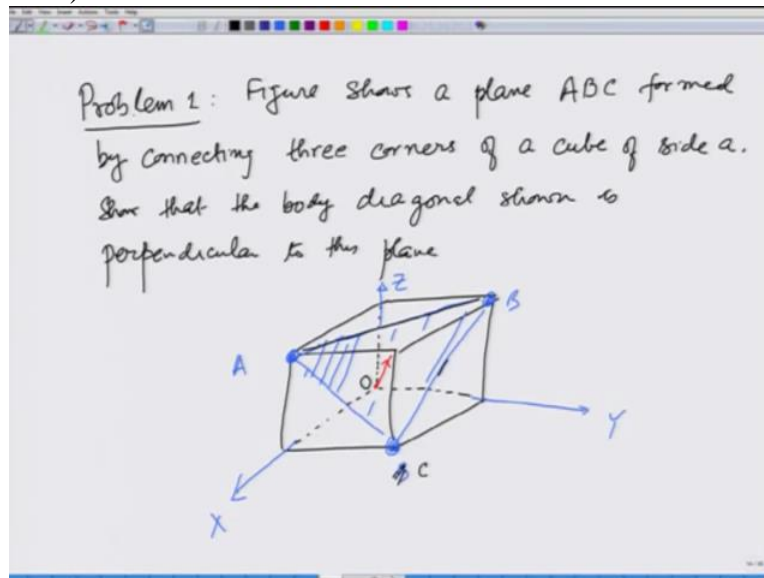 Problem 1: Figure shows a plane ABC formed
by connecting three corners of a cube of side a.
Show that the body diagonal shown is
perpendicular to this plane
Z
B
A
O
Y
C
X